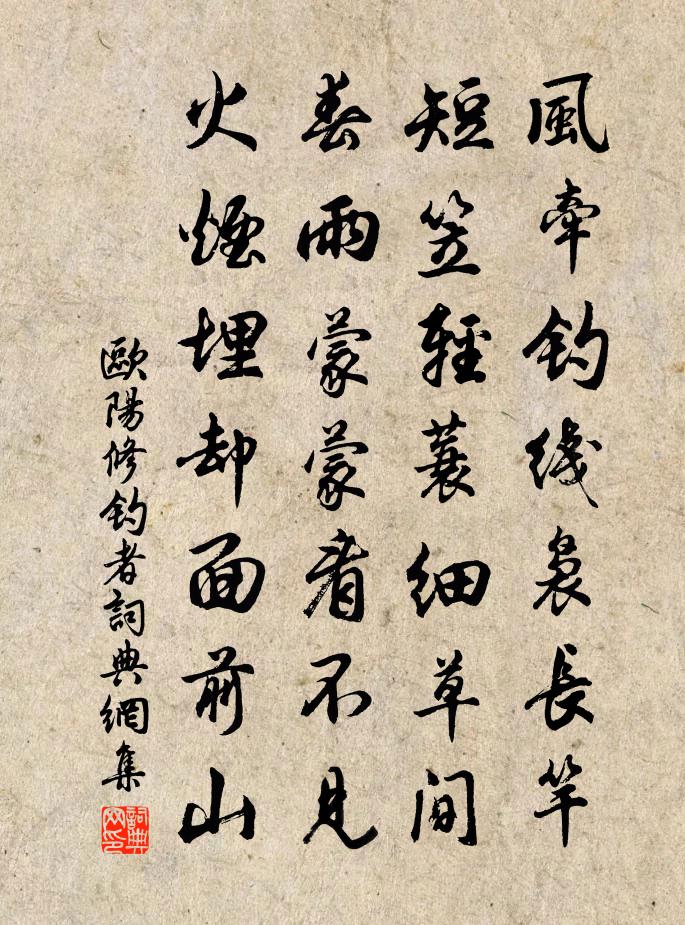 風牽釣綫裊長竿
短笠輕蓑細草間
春雨蒙蒙看不見
火煙埋却面前山
歐陽修釣者詞典網集
詞典網印